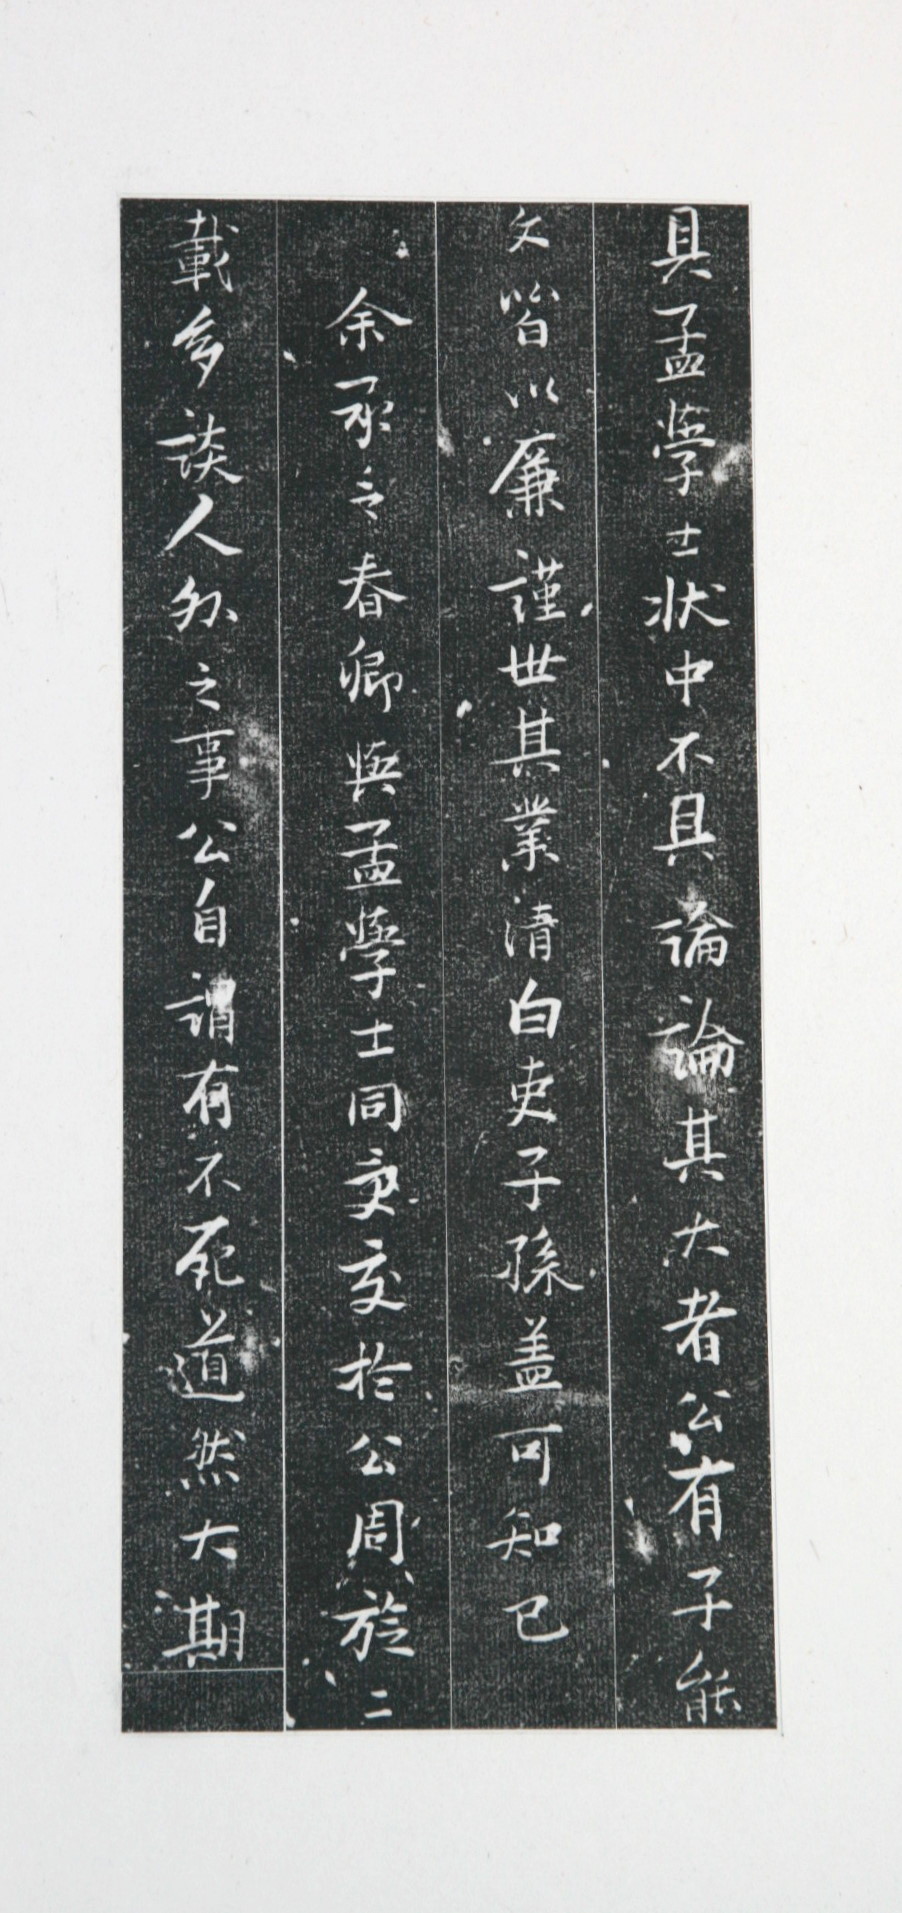 具孟學士狀中不具論論其大者公有子能
文皆以廉謹世其業清白吏子孫盖可知已
余承之春卿與孟學士同更交於公周旋二
載多談人外之事公自謂有不死道然大期